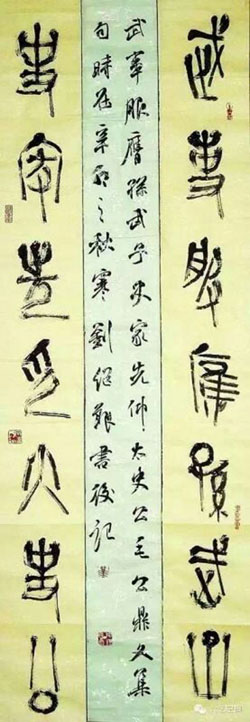 武事服膺孫武子
武事服膺孫武子史家先仰太史公毛公鼎文集
句時在辛卯之秋寒劉紹書後記
史家先仰大史公